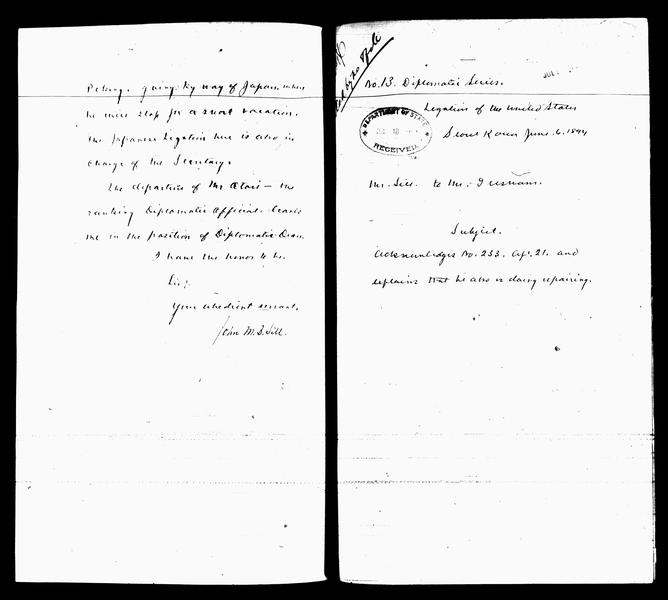 Peking, going by way of Japan, where
he will stop for a short vacation.
The Japanese Legation here is also in
charge of the Secretary.
The departure of Mr Otori - the
ranking Diplomatic Official - leaves
me in the position of Diplomatic Dean.
I have the honor to be,
Sir,
Your obedient servant,
John M. B. Sill.
No. 13. Diplomatic Series.
Legation of the United States
Seoul Korea June 6. 1894
DEPARTMENT OF STATE
RECEIVED
Mr. Sill to Mr.
Subject.
Acknowledges No. 233. Apl. 21. and
explains that he also is doing repairing.